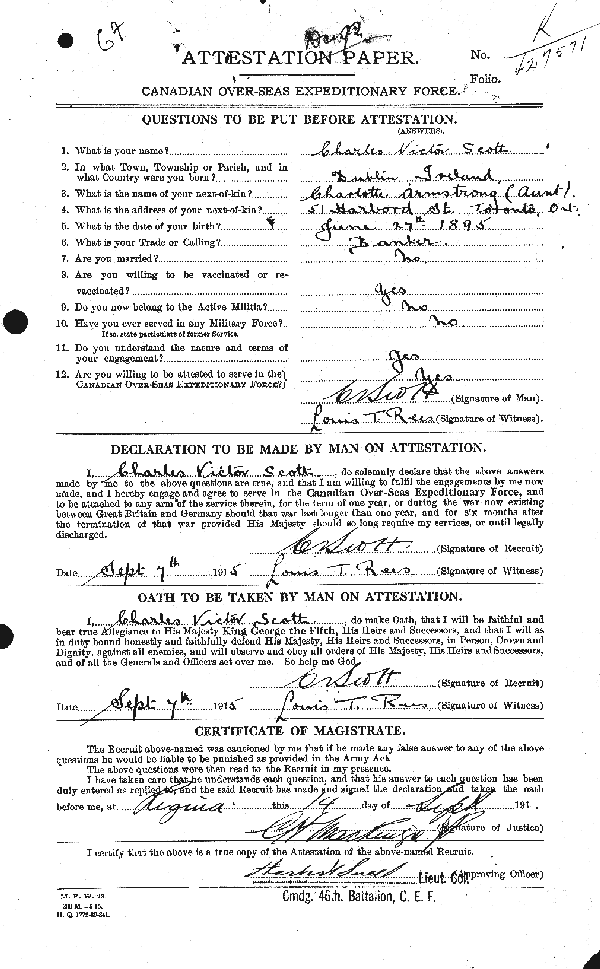 67
ATTESTATION PAPER.
No.
427571
Folio.
CANADIAN OVER-SEAS EXPEDITIONARY FORCE.
QUESTIONS TO BE PUT BEFORE ATTESTATION.
(ANSWERS).
1. What is your name? Charles Victor Scott
2. In what Town, Township or Parish, and in
what Country were you born? Dublin Ireland
3. What is the name of your next-of-kin? Charlotte Armstrong (Aunt).
4. What is the address of your next-of-kin? 51 Harbord St. Toronto, Ont.
5. What is the date of your birth? June 27th 1895
6. What is your Trade or Calling? Banker.
7. Are you married? No
8. Are you willing to be vaccinated or re-
vaccinated? Yes
9. Do you now belong to the Active Militia? No
10. Have you ever served in any Military Force? No
If so, state particulars of former Service.
11. Do you understand the nature and terms of
your engagement? Yes
12. Are you willing to be attested to serve in the Yes
CANADIAN OVER-SEAS EXPEDITIONARY FORCE?
CV Scott (Signature of Man).
Louis T. Rees (Signature of Witness).
DECLARATION TO BE MADE BY MAN ON ATTESTATION.
I, Charles Victor Scott, do solemnly declare that the above answers
made by me to the above questions are true, and that I am willing to fulfil the engagements by me now
made, and I hereby engage and agree to serve in the Canadian Over-Seas Expeditionary Force, and
to be attached to any arm of the service therein, for the term of one year, or during the war now existing
between Great Britain and Germany should that war last longer than one year, and for six months after
the termination of that war provided His Majesty should so long require my services, or until legally
discharged.
CV Scott (Signature of Recruit)
Date Sept 7th 1915 Louis T. Rees (Signature of Witness)
OATH TO BE TAKEN BY MAN ON ATTESTATION.
I, Charles Victor Scott, do make Oath, that I will be faithful and
bear true Allegiance to His Majesty King George the Fifth, His Heirs and Successors, and that I will as
in duty bound honestly and faithfully defend His Majesty, His Heirs and Successors, in Person, Crown and
Dignity, against all enemies, and will observe and obey all orders of His Majesty, His Heirs and Successors,
and of all the Generals and Officers set over me. So help me God.
CV Scott (Signature of Recruit)
Date Sept 7th 1915 Louis T. Rees (Signature of Witness)
CERTIFICATE OF MAGISTRATE.
The Recruit above-named was cautioned by me that if he made any false answer to any of the above
questions he would be liable to be punished as provided in the Army Act.
The above questions were then read to the Recruit in my presence.
I have taken care that he understands each question, and that his answer to each question has been
duly entered as replied to, and the said Recruit has made and signed the declaration and taken the oath
before me, at Regina this 14 day of Sept 191 .
(Signature of Justice)
I certify that the above is a true copy of the Attestation of the above-named Recruit.
Lieut. Col. (Approving Officer)
Cmdg. 46th. Battalion, C. E. F.